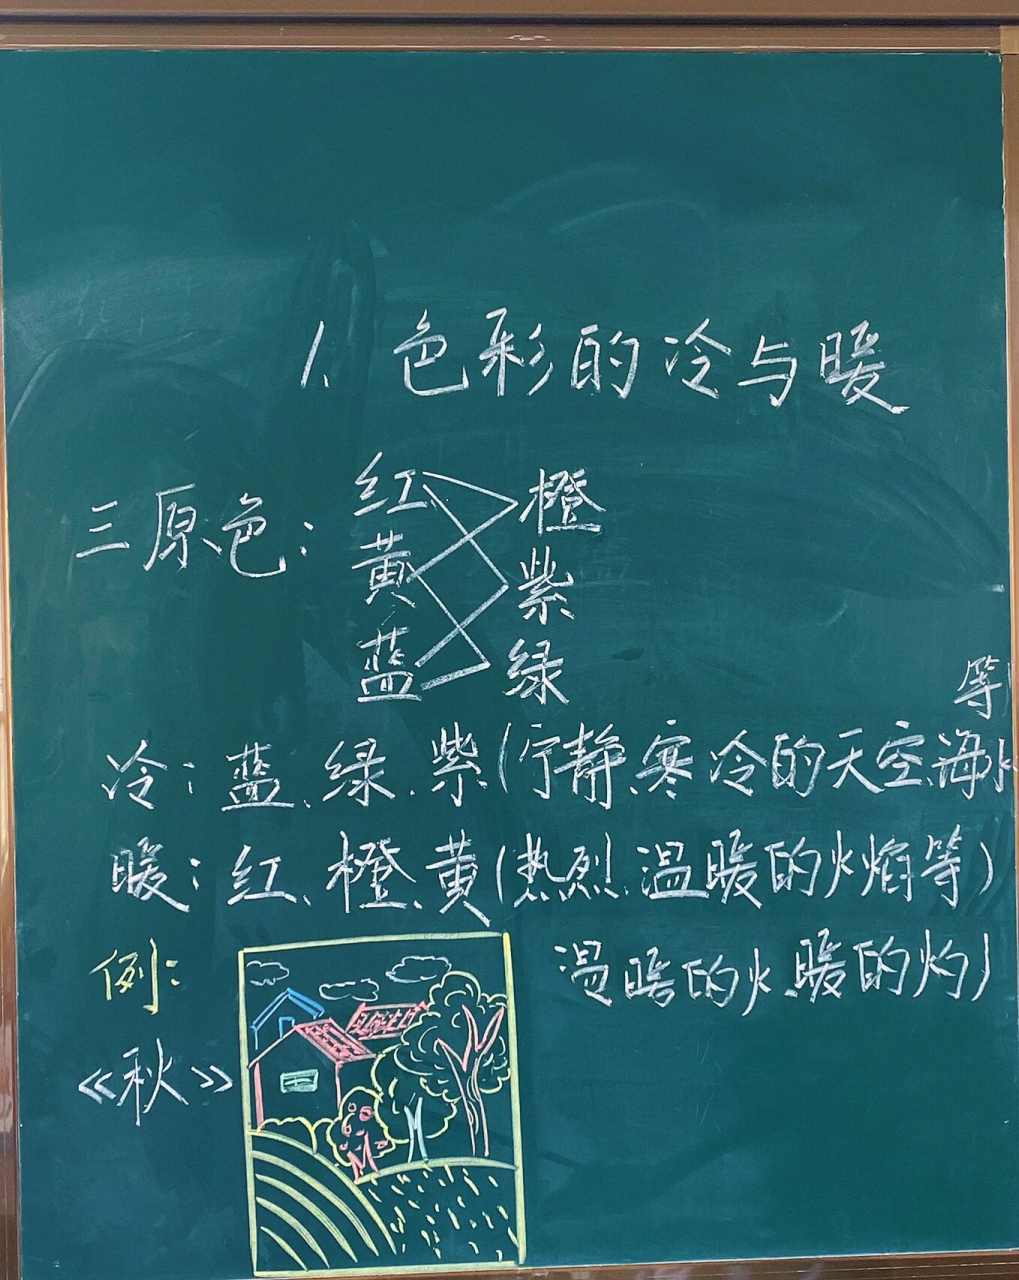 1. 色彩的冷与暖
三原色: 红 橙
黄 紫
蓝 绿
等
冷: 蓝、绿、紫(宁静、寒冷的天空、海水
暖: 红、橙、黄(热烈、温暖的火焰等)
例: 温暖的火、暖的灼)
《秋》